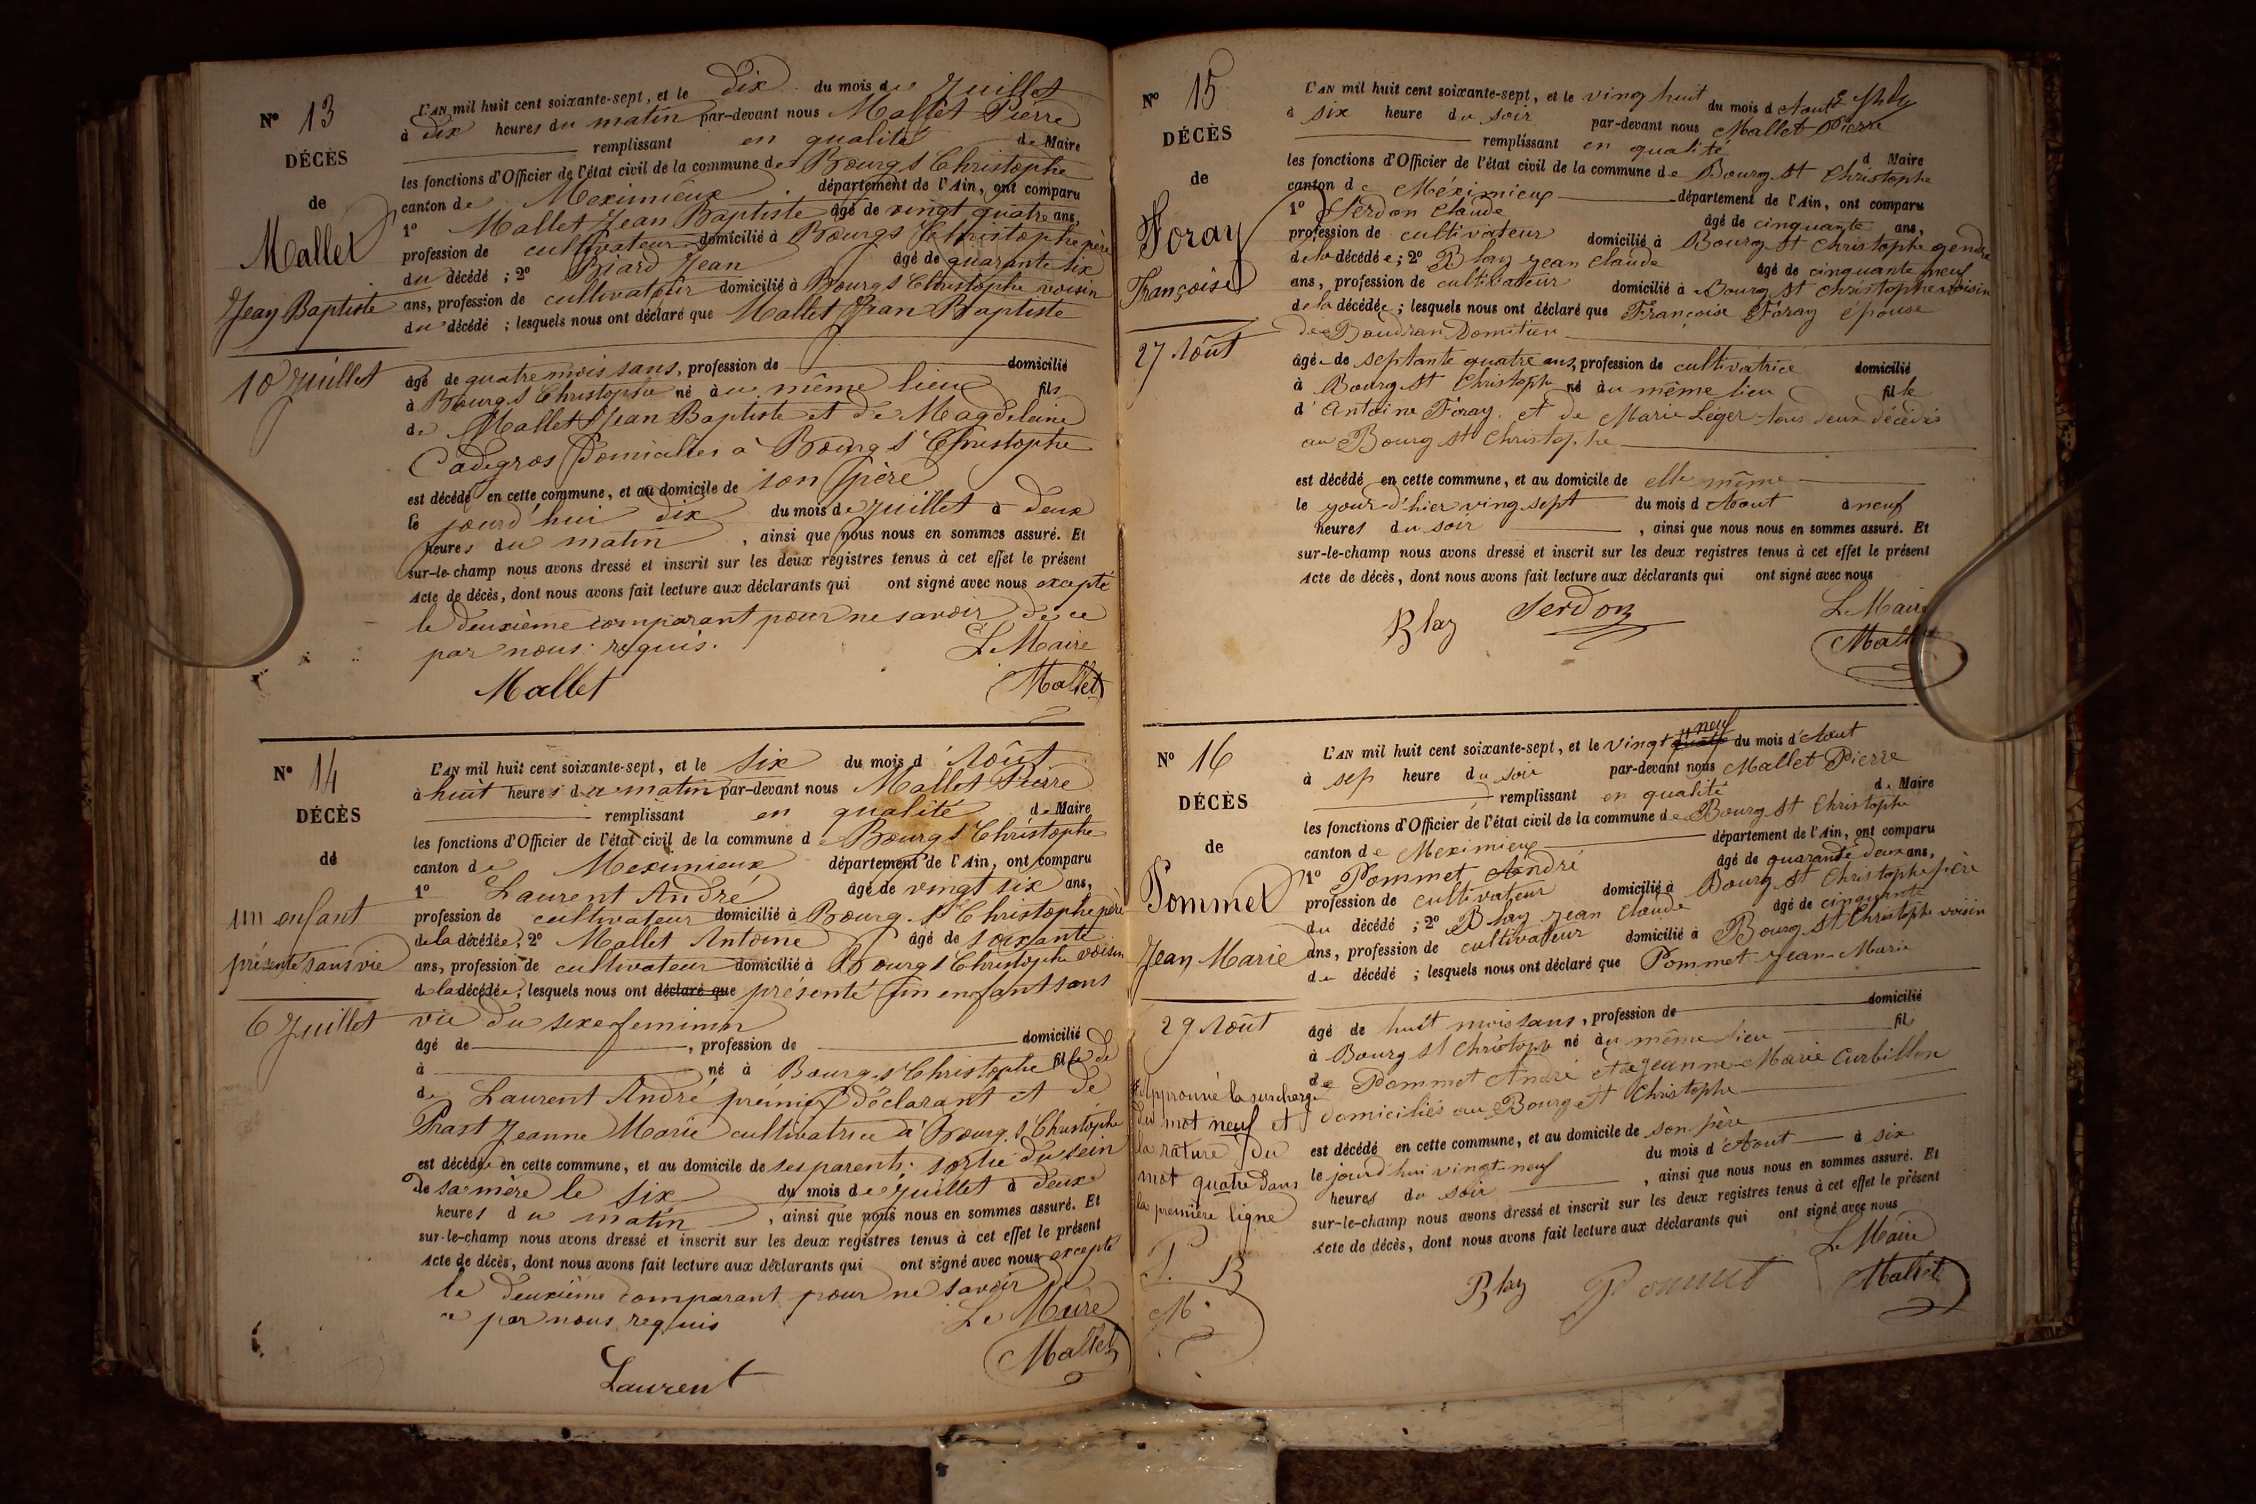 N° 13
DÉCÈS
de
Mallet
Jean Baptiste
10 Juillet
L'AN mil huit cent soixante-sept, et le dix du mois de Juillet
à dix heures du matin par-devant nous Mallet Pierre
remplissant en qualité de Maire
les fonctions d'Officier de l'état civil de la commune de Bourg St Christophe
canton de Meximieux département de l'Ain, ont comparu
1° Mallet Jean Baptiste âgé de vingt quatre ans,
profession de cultivateur domicilié à Bourg St Christophe père
du décédé ; 2° Biard Jean âgé de quarante six
ans, profession de cultivateur domicilié à Bourg St Christophe voisin
du décédé ; lesquels nous ont déclaré que Mallet Jean Baptiste
âgé de quatre mois sans, profession de domicilié
à Bourg St Christophe né au même lieu fils
de Mallet Jean Baptiste et de Magdeleine
Cadegros Domiciliés à Bourg St Christophe
est décédé en cette commune, et au domicile de son père
le jourd'hui dix du mois de Juillet à deux
heures du matin, ainsi que nous nous en sommes assuré. Et
sur-le-champ nous avons dressé et inscrit sur les deux registres tenus à cet effet le présent
Acte de décès, dont nous avons fait lecture aux déclarants qui ont signé avec nous excepté
le deuxième comparant pour ne savoir de ce
par nous requis.
Le Maire
Mallet
Mallet
N° 14
DÉCÈS
de
un enfant
présenté sans vie
6 Juillet
L'AN mil huit cent soixante-sept, et le six du mois d'Août
à huit heures du matin par-devant nous Mallet Pierre
remplissant en qualité de Maire
les fonctions d'Officier de l'état civil de la commune de Bourg St Christophe
canton de Meximieux département de l'Ain, ont comparu
1° Laurent André âgé de vingt six ans,
profession de cultivateur domicilié à Bourg St Christophe père
de la décédée, 2° Mallet Antoine âgé de soixante
ans, profession de cultivateur domicilié à Bourg St Christophe voisin
de la décédée ; lesquels nous ont déclaré que présenté un enfant sans
vie du sexe feminin
âgé de , profession de domicilié
à né à Bourg St Christophe fille de
de Laurent André prémier déclarant et de
Prast Jeanne Marie cultivatrice à Bourg St Christophe
est décédée en cette commune, et au domicile de ses parents. sortie du sein
de sa mère le six du mois de Juillet à deux
heures du matin, ainsi que nous nous en sommes assuré. Et
sur-le-champ nous avons dressé et inscrit sur les deux registres tenus à cet effet le présent
Acte de décès, dont nous avons fait lecture aux déclarants qui ont signé avec nous excepté
le deuxième comparant pour ne savoir de
ce par nous requis
Le Maire
Mallet
Laurent
N° 15
DÉCÈS
de
Foray
Françoise
27 Août
L'AN mil huit cent soixante-sept, et le ving huit du mois d Aout
à six heure du soir par-devant nous Mallet Pierre
remplissant en qualité d Maire
les fonctions d'Officier de l'état civil de la commune de Bourg St Christophe
canton de Méximieux département de l'Ain, ont comparu
1° Serdon Claude âgé de cinquante ans,
profession de cultivateur domicilié à Bourg St Christophe gendre
de la décédée ; 2° Blay Jean Claude âgé de cinquante neuf
ans, profession de cultivateur domicilié à Bourg St Christophe voisin
de la décédée ; lesquels nous ont déclaré que Françoise Foray épouse
de Baudran Domitien
âgée de septante quatre ans, profession de cultivatrice domicilié
à Bourg St Christophe né au même lieu fille
d'Antoine Foray et de Marie Léger tous deux décédés
au Bourg St Christophe
est décédé en cette commune, et au domicile de elle même
le jour d'hier ving sept du mois d Aout à neuf
heures du soir, ainsi que nous nous en sommes assuré. Et
sur-le-champ nous avons dressé et inscrit sur les deux registres tenus à cet effet le présent
Acte de décès, dont nous avons fait lecture aux déclarants qui ont signé avec nous
Blay Serdon Le Maire
Mallet
N° 16
DÉCÈS
de
Pommet
Jean Marie
29 Août
Approuvé la surcharge
du mot neuf et
la rature du
mot quatre dans
la première ligne
P. B
M
L'AN mil huit cent soixante-sept, et le vingt quatre neuf du mois d'Aout
à sep heure du soir par-devant nous Mallet Pierre
remplissant en qualité de Maire
les fonctions d'Officier de l'état civil de la commune de Bourg St Christophe
canton de Meximieux département de l'Ain, ont comparu
1° Pommet André âgé de quarante deux ans,
profession de cultivateur domicilié à Bourg St Christophe père
du décédé ; 2° Blay Jean Claude âgé de cinquante
ans, profession de cultivateur domicilié à Bourg St Christophe voisin
du décédé ; lesquels nous ont déclaré que Pommet Jean-Marie
âgé de huit mois sans, profession de domicilié
à Bourg St Christophe né au même lieu fils
de Pommet André et de Jeanne-Marie Curbillon
domiciliés au Bourg St Christophe
est décédé en cette commune, et au domicile de son père
le jourd'hui vingt-neuf du mois d'Aout à six
heures du soir, ainsi que nous nous en sommes assuré. Et
sur-le-champ nous avons dressé et inscrit sur les deux registres tenus à cet effet le présent
Acte de décès, dont nous avons fait lecture aux déclarants qui ont signé avec nous
Le Maire
Blay Pommet Mallet